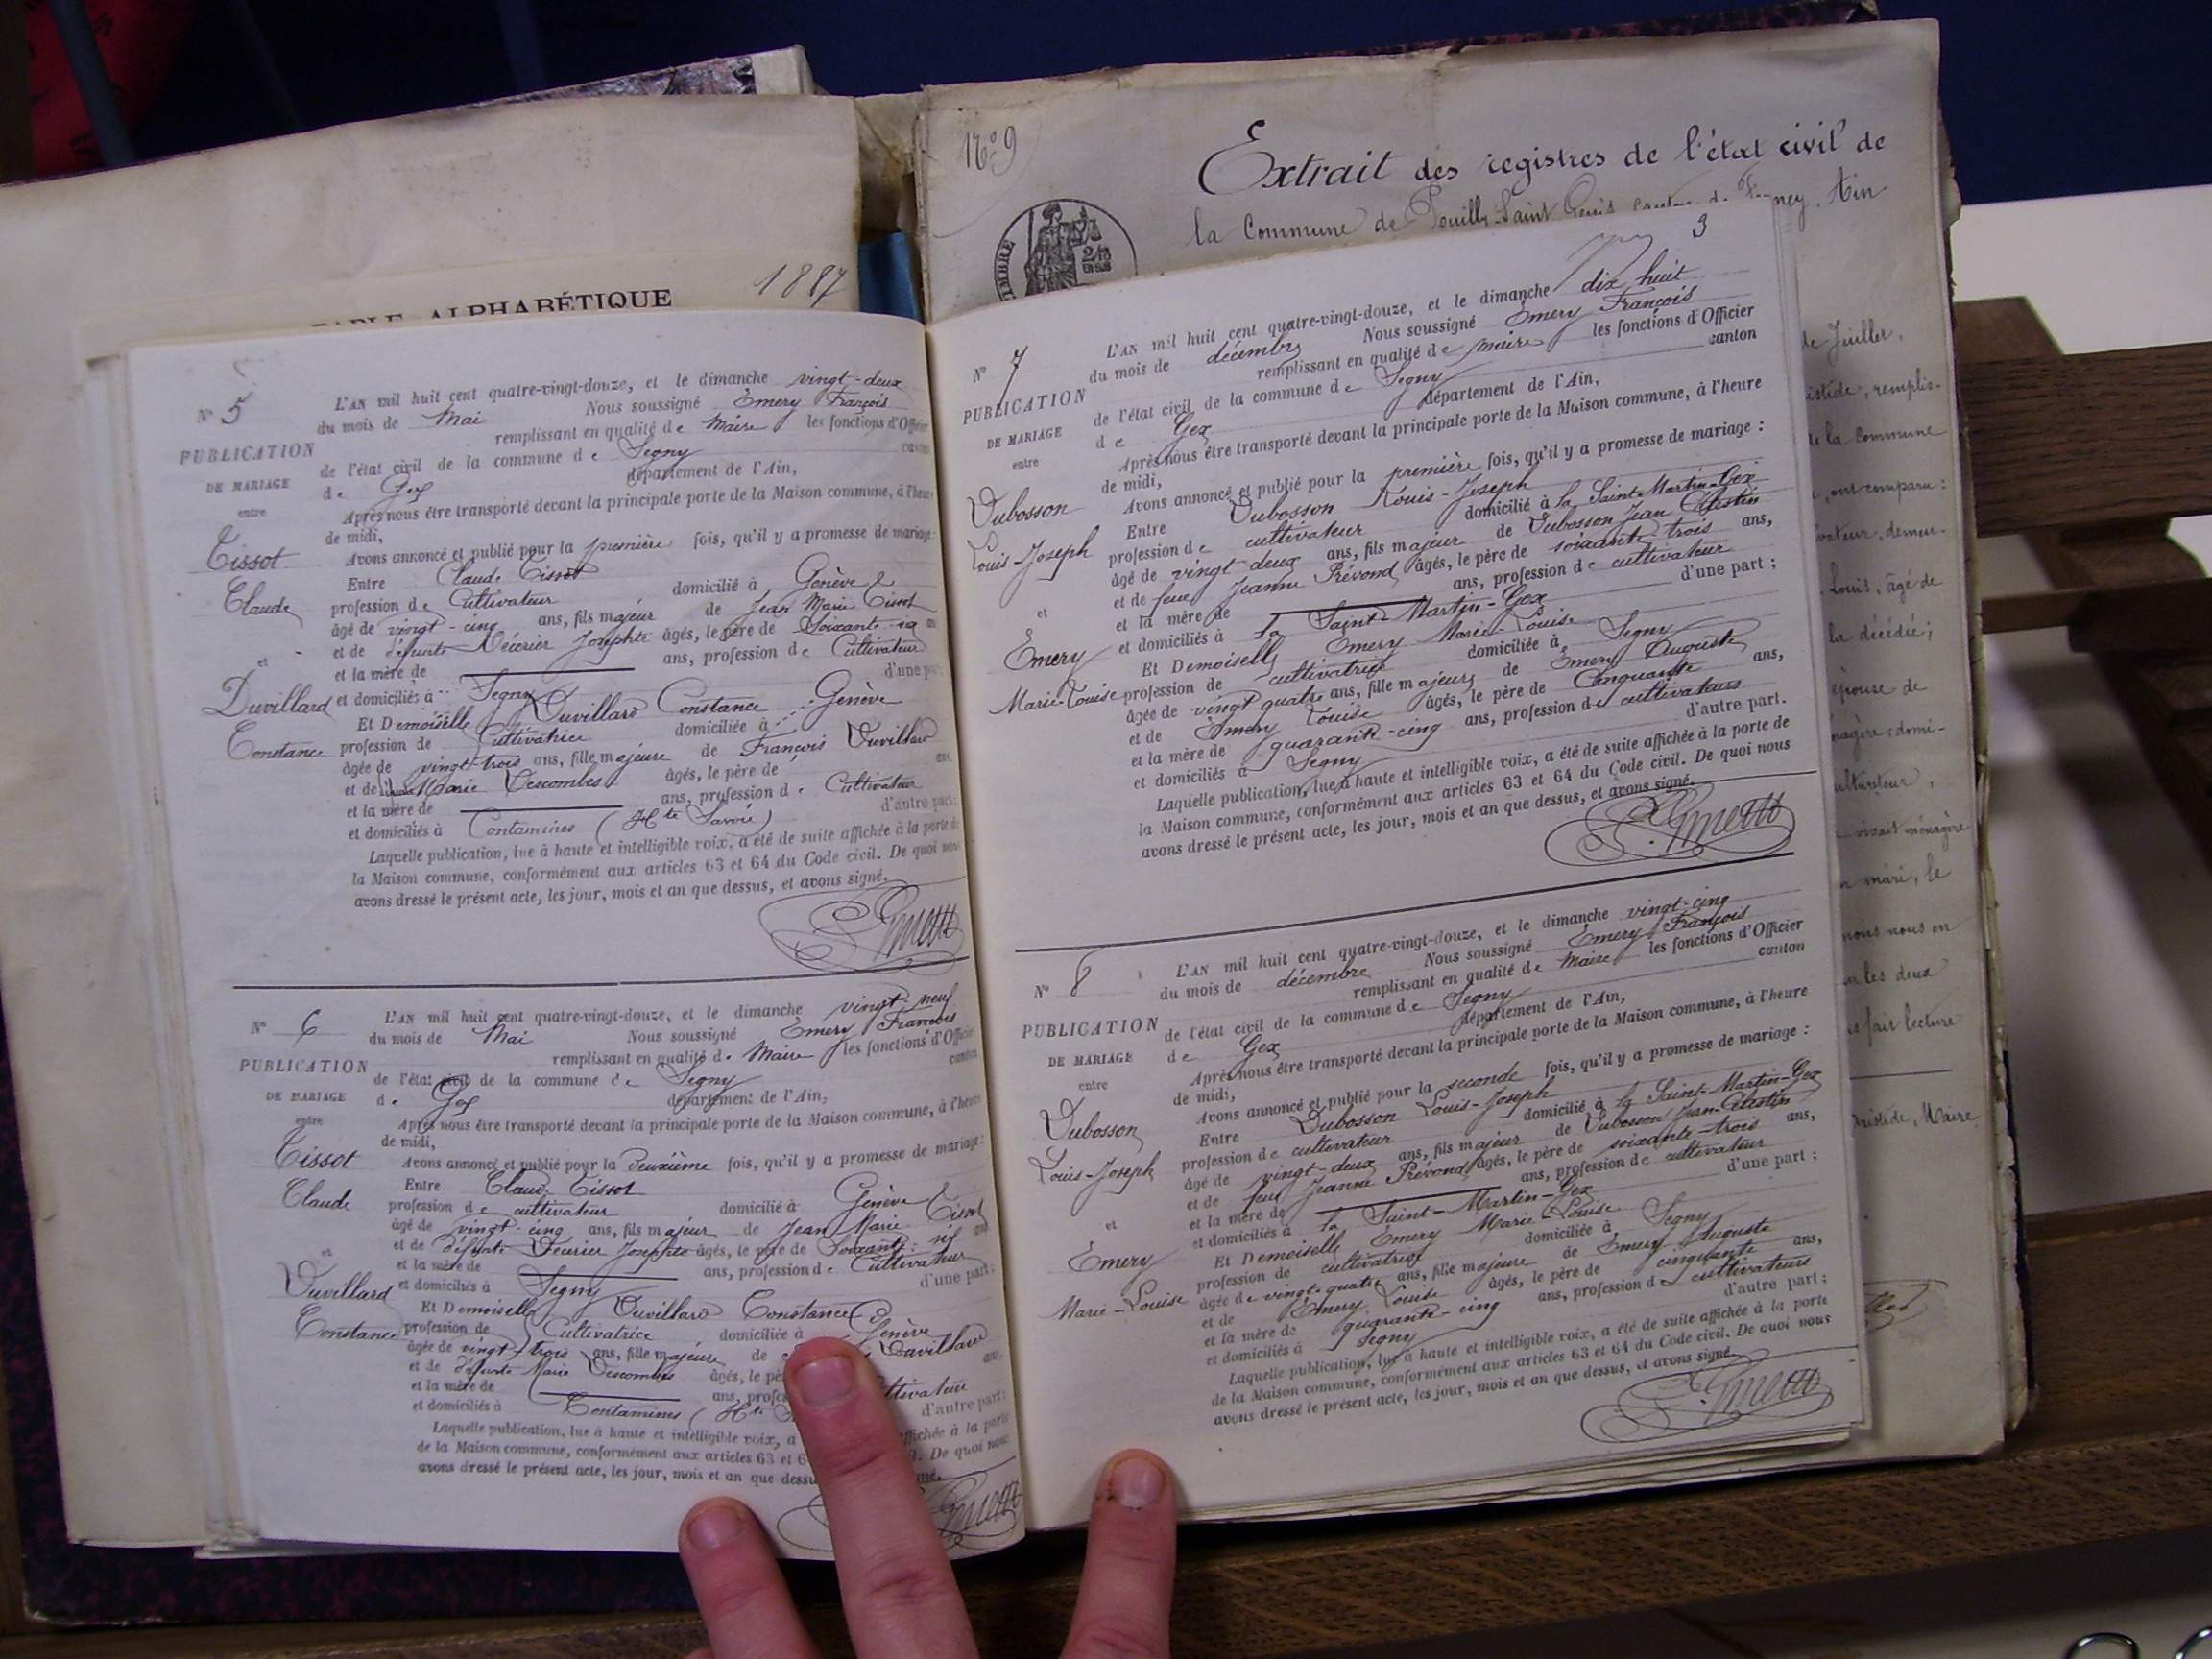 1887
TABLE ALPHABÉTIQUE
N° 5
PUBLICATION
DE MARIAGE
entre
Tissot
Claude
et
Duvillard
Constance
L'AN mil huit cent quatre-vingt-douze, et le dimanche vingt-deux
du mois de Mai Nous soussigné Emery François
remplissant en qualité de Maire les fonctions d'Officier
de l'état civil de la commune de Segny
de Gex département de l'Ain,
Après nous être transporté devant la principale porte de la Maison commune, à l'heure
de midi,
Avons annoncé et publié pour la première fois, qu'il y a promesse de mariage :
Entre Claude Tissot
profession de Cultivateur domicilié à Genève
âgé de vingt-cinq ans, fils majeur de Jean Marie Tissot
et de défunte Josephte âgés, le père de Soixante-six
et la mère de ans, profession de Cultivateur
et domiciliés à Segny d'une part
Et Demoiselle Duvillard Constance
profession de Cultivatrice domiciliée à Genève
âgée de vingt-trois ans, fille majeure de François Duvillard
et de Marie Descombes âgés, le père de ans,
et la mère de ans, profession de Cultivateur
et domiciliés à Contamines (Hte Savoie) d'autre part.
Laquelle publication, lue à haute et intelligible voix, a été de suite affichée à la porte de
la Maison commune, conformément aux articles 63 et 64 du Code civil. De quoi nous
avons dressé le présent acte, les jour, mois et an que dessus, et avons signé.
N° 6
PUBLICATION
DE MARIAGE
entre
Tissot
Claude
et
Duvillard
Constance
L'AN mil huit cent quatre-vingt-douze, et le dimanche vingt-neuf
du mois de Mai Nous soussigné Emery François
remplissant en qualité de Maire les fonctions d'Officier
de l'état civil de la commune de Segny canton
de Gex département de l'Ain,
Après nous être transporté devant la principale porte de la Maison commune, à l'heure
de midi,
Avons annoncé et publié pour la Deuxième fois, qu'il y a promesse de mariage :
Entre Claude Tissot
profession de cultivateur domicilié à Genève
âgé de vingt-cinq ans, fils majeur de Jean Marie Tissot
et de défunte Josephte âgés, le père de Soixante-six ans
et la mère de ans, profession de Cultivateur
et domiciliés à Segny d'une part :
Et Demoiselle Duvillard Constance
profession de Cultivatrice domiciliée à Genève
âgée de vingt-trois ans, fille majeure de Duvillard
et de défunte Marie Descombes âgés, le ans,
et la mère de ans,
et domiciliés à Contamines (Hte d'autre part :
Laquelle publication, lue à haute et intelligible voix, a affichée à la porte
de la Maison commune, conformément aux articles 63 et De quoi nous
avons dressé le présent acte, les jour, mois et an que
N° 9
Extrait des registres de l'état civil de
la Commune de Pouilly-Saint Genis canton de Ferney, Ain
TIMBRE
3
N° 7
PUBLICATION
DE MARIAGE
entre
Dubosson
Louis-Joseph
et
Emery
Marie-Louise
L'AN mil huit cent quatre-vingt-douze, et le dimanche dix huit
du mois de décembre Nous soussigné Emery François
remplissant en qualité de maire les fonctions d'Officier
de l'état civil de la commune de Segny canton
de Gex département de l'Ain,
Après nous être transporté devant la principale porte de la Maison commune, à l'heure
de midi,
Avons annoncé et publié pour la première fois, qu'il y a promesse de mariage :
Entre Dubosson Louis-Joseph
profession de cultivateur domicilié à la Saint-Martin-Gex
âgé de vingt-deux ans, fils majeur de Dubosson Jean Célestin
et de feue Jeanne Prévond âgés, le père de soixante-trois ans,
et la mère de ans, profession de cultivateur
et domiciliés à la Saint-Martin-Gex d'une part ;
Et Demoiselle Emery Marie-Louise
profession de cultivatrice domiciliée à Segny
âgée de vingt quatre ans, fille majeure de Emery Auguste
et de Emery Louise âgés, le père de Cinquante ans,
et la mère de quarante-cinq ans, profession de cultivateurs
et domiciliés à Segny d'autre part.
Laquelle publication, lue à haute et intelligible voix, a été de suite affichée à la porte de
la Maison commune, conformément aux articles 63 et 64 du Code civil. De quoi nous
avons dressé le présent acte, les jour, mois et an que dessus, et avons signé.
N° 8
PUBLICATION
DE MARIAGE
entre
Dubosson
Louis-Joseph
et
Emery
Marie-Louise
L'AN mil huit cent quatre-vingt-douze, et le dimanche vingt-cinq
du mois de décembre Nous soussigné Emery François
remplissant en qualité de Maire les fonctions d'Officier
de l'état civil de la commune de Segny canton
de Gex département de l'Ain,
Après nous être transporté devant la principale porte de la Maison commune, à l'heure
de midi,
Avons annoncé et publié pour la seconde fois, qu'il y a promesse de mariage :
Entre Dubosson Louis-Joseph
profession de cultivateur domicilié à la Saint-Martin-Gex
âgé de vingt-deux ans, fils majeur de Dubosson Jean-Célestin
et de feue Jeanne Prévond âgés, le père de soixante-trois ans,
et la mère de ans, profession de cultivateur
et domiciliés à la Saint-Martin-Gex d'une part ;
Et Demoiselle Emery Marie-Louise
profession de cultivatrice domiciliée à Segny
âgée de vingt-quatre ans, fille majeure de Emery Auguste
et de Emery Louise âgés, le père de cinquante ans,
et la mère de quarante-cinq ans, profession de cultivateurs
et domiciliés à Segny d'autre part ;
Laquelle publication, lue à haute et intelligible voix, a été de suite affichée à la porte
de la Maison commune, conformément aux articles 63 et 64 du Code civil. De quoi nous
avons dressé le présent acte, les jour, mois et an que dessus, et avons signé.
de Juillet,
remplis-
de la Commune
ont comparu :
demeu-
Louis, âgé de
la décédée ;
épouse de
domi-
ménagère
mari, le
nous nous en
les deux
fait lecture
Maire.